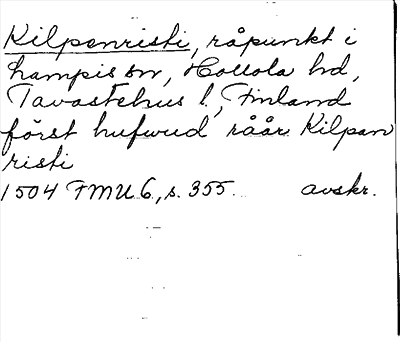 Kilpenristi, råpunkt i
hampis sn, Hollola hd,
Tavastehus l, Finland
först hufwud råår Kilpan
risti
1504 FMU 6, s. 355. avskr.